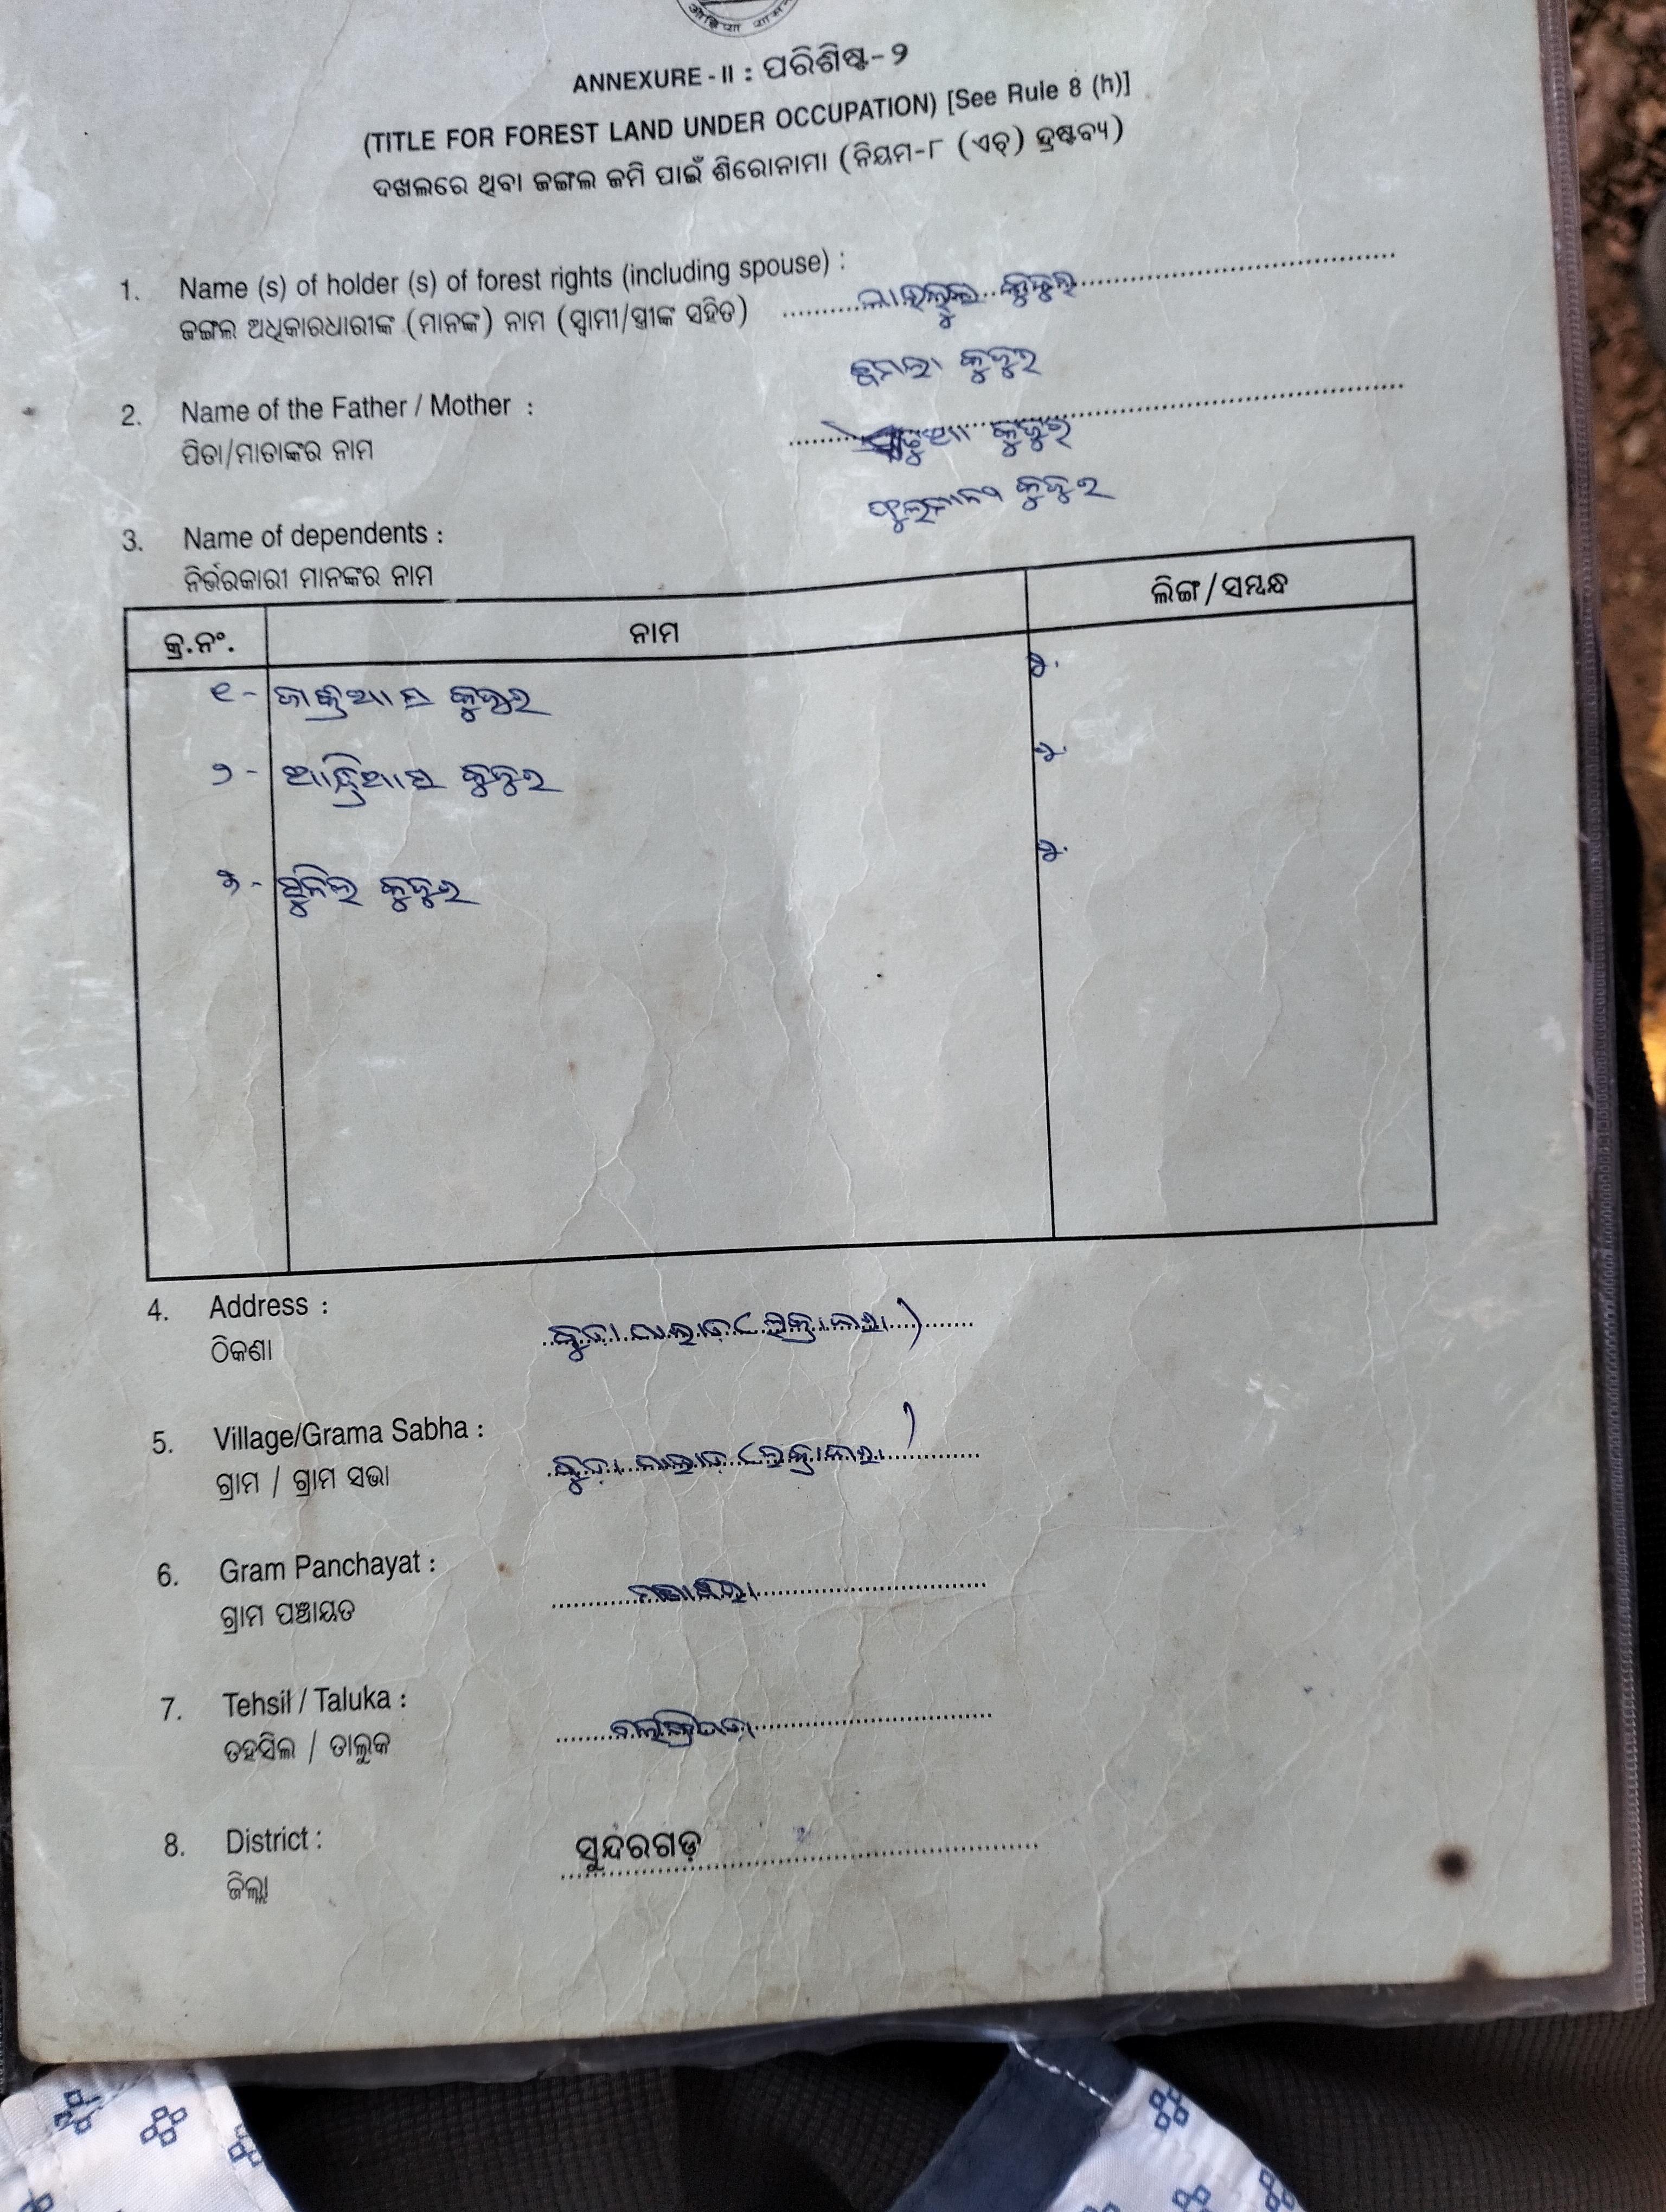 ANNEXURE - II : ପରିଶିଷ୍ଟ-୨
(TITLE FOR FOREST LAND UNDER OCCUPATION) [See Rule 8 (h)]
ଦଖଲରେ ଥିବା ଜଙ୍ଗଲ ଜମି ପାଇଁ ଶିରୋନାମା (ନିୟମ-୮ (ଏଚ୍) ଦ୍ରଷ୍ଟବ୍ୟ)
1. Name (s) of holder (s) of forest rights (including spouse) :
ଜଙ୍ଗଲ ଅଧିକାରଧାରୀଙ୍କ (ମାନଙ୍କ) ନାମ (ସ୍ୱାମୀ/ସ୍ତ୍ରୀଙ୍କ ସହିତ) କୁଜୁର
କୁଜୁର
2. Name of the Father / Mother :
ପିତା/ମାତାଙ୍କର ନାମ କୁଜୁର
କୁଜୁର
3. Name of dependents :
ନିର୍ଭରକାରୀ ମାନଙ୍କର ନାମ
କ୍ର.ନଂ. ନାମ ଲିଙ୍ଗ/ସମ୍ବନ୍ଧ
୧- କୁଜୁର
୨- କୁଜୁର
୩- ସୁନିଲ କୁଜୁର
4. Address :
ଠିକଣା
5. Village/Grama Sabha :
ଗ୍ରାମ / ଗ୍ରାମ ସଭା
6. Gram Panchayat :
ଗ୍ରାମ ପଞ୍ଚାୟତ
7. Tehsil / Taluka :
ତହସିଲ / ତାଲୁକ
8. District : ସୁନ୍ଦରଗଡ଼
ଜିଲ୍ଲା